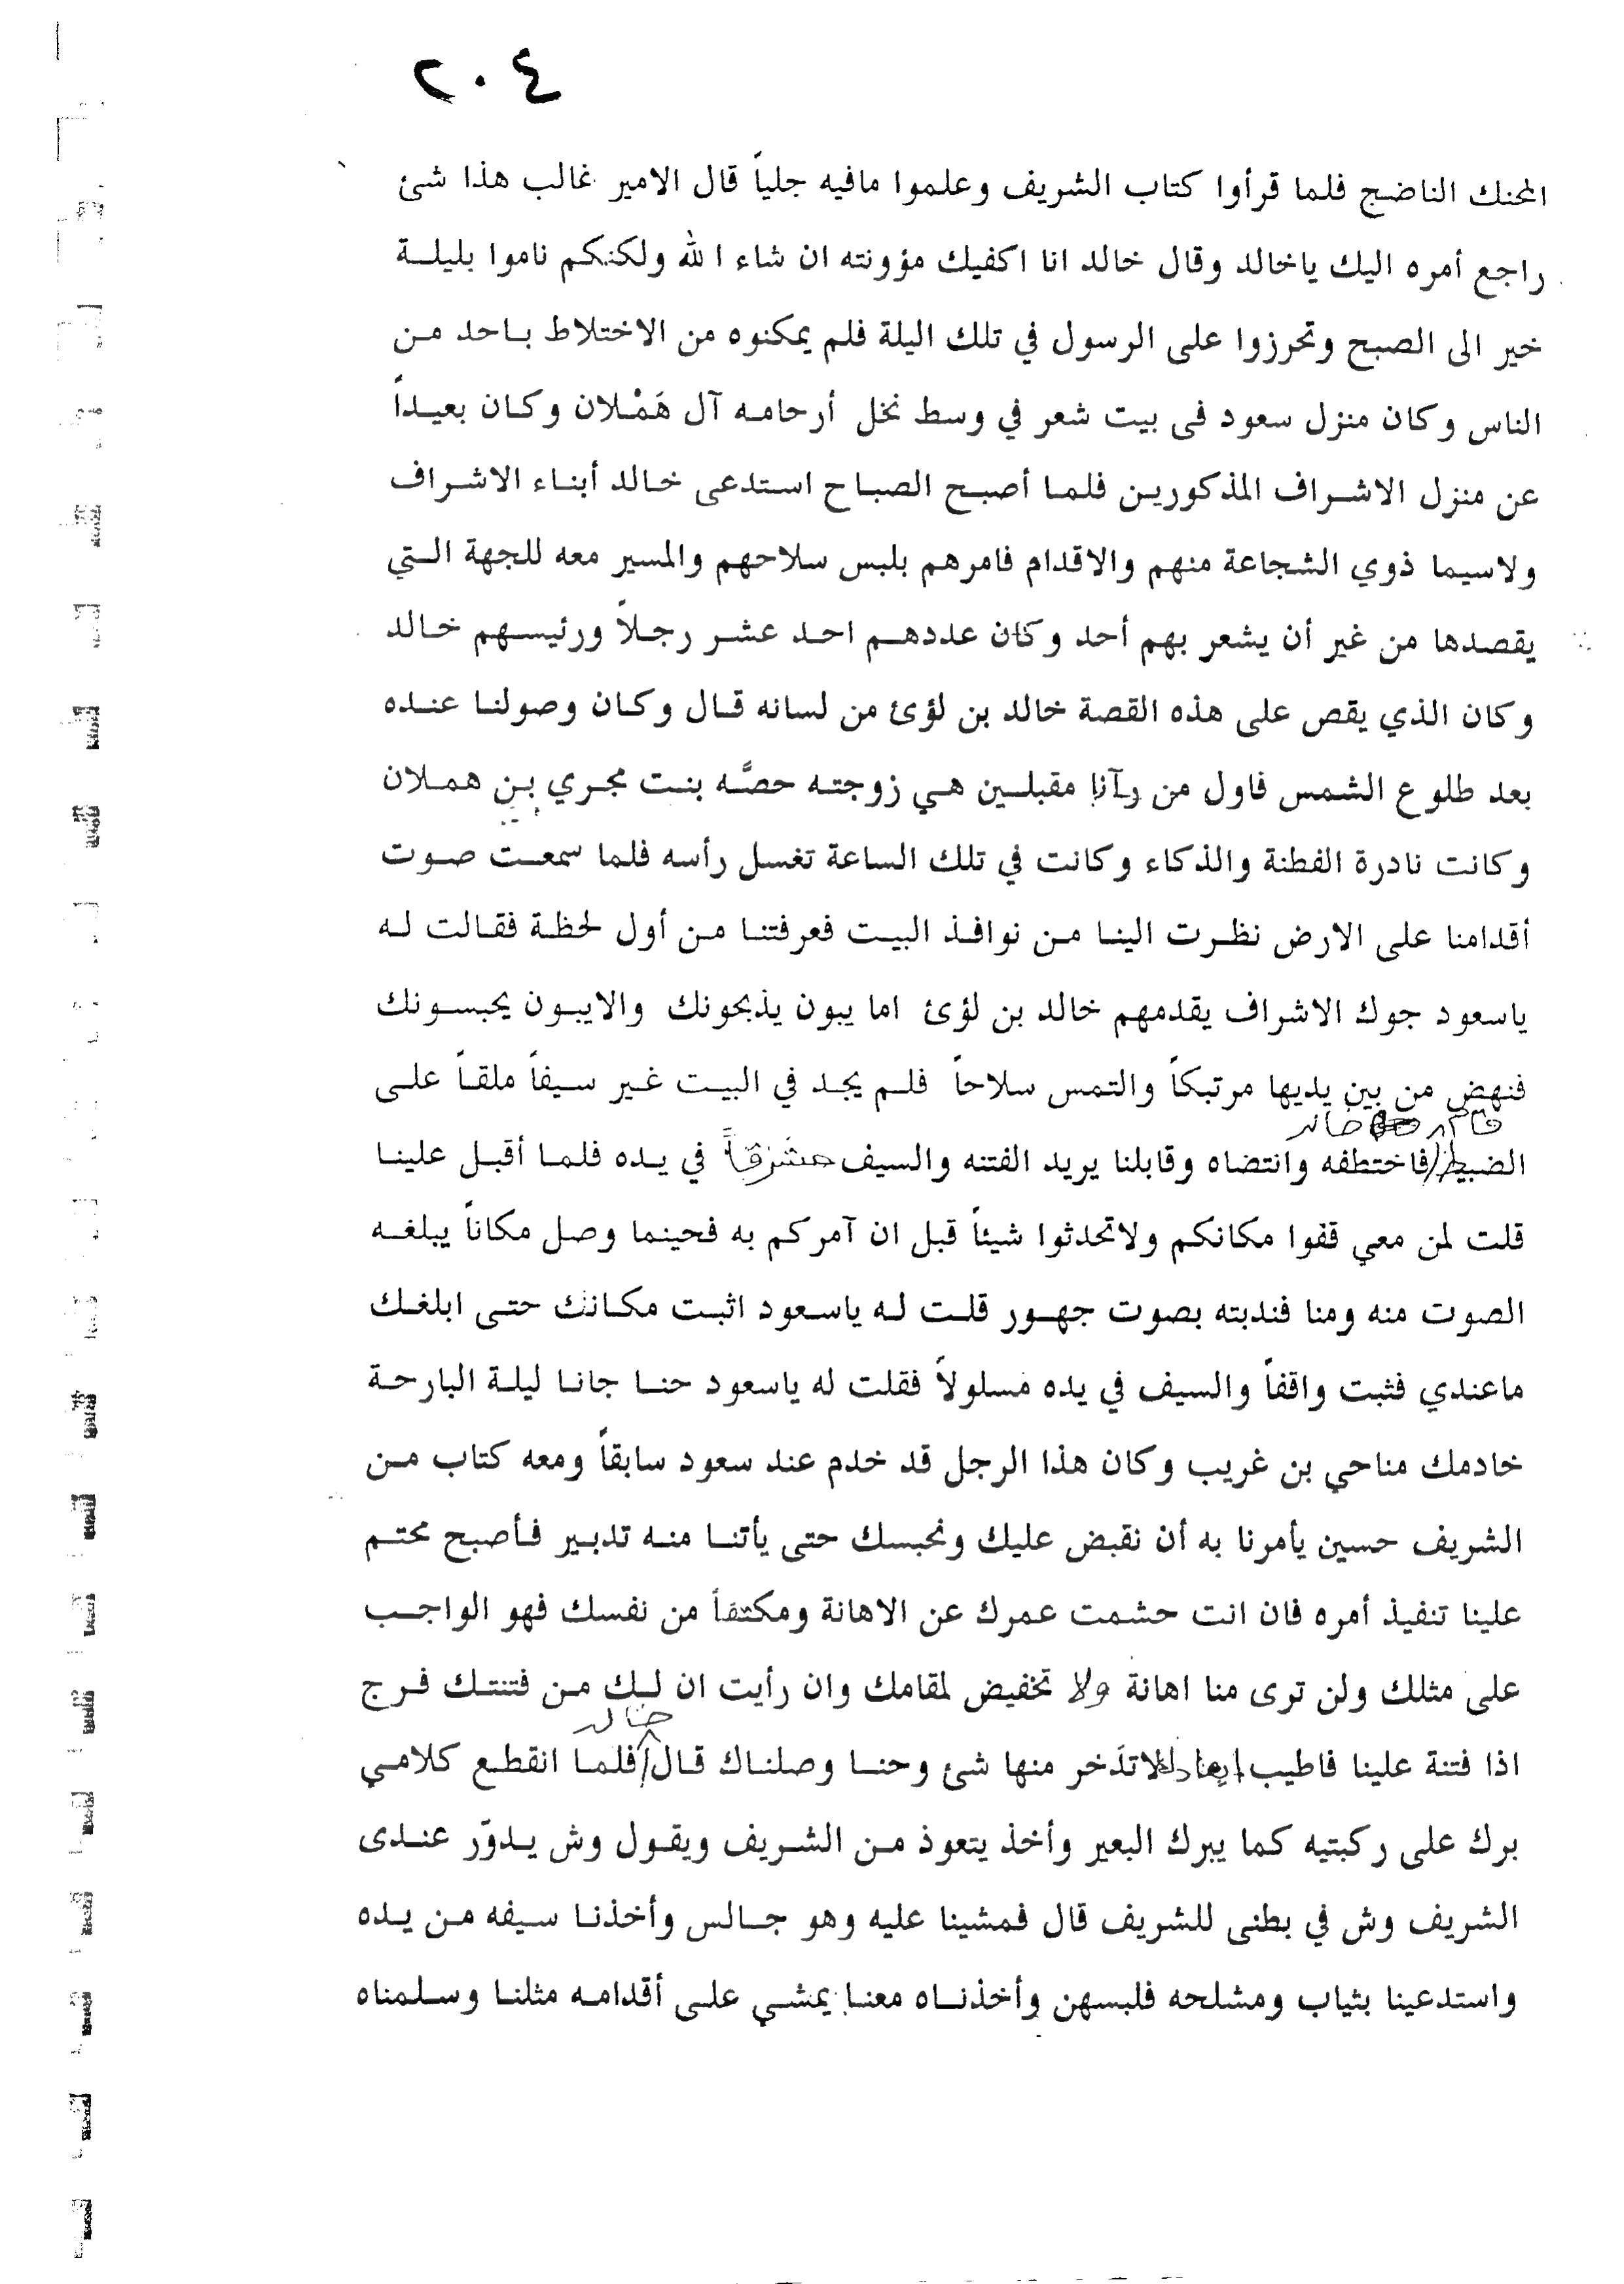 ٢٠٤
المحنك الناضج فلما قرأوا كتاب الشريف وعلموا مافيه جلياً قال الامير غالب هذا شئ
راجع أمره اليك ياخالد وقال خالد انا اكفيك مؤونته ان شاء الله ولكنكم ناموا بليلة
خير الى الصبح وتحرزوا على الرسول في تلك اليلة فلم يمكنوه من الاختلاط باحد من
الناس وكان منزل سعود فى بيت شعر في وسط نخل أرحامه آل هَمْلان وكان بعيداً
عن منزل الاشراف المذكورين فلما أصبح الصباح استدعى خالد أبناء الاشراف
ولاسيما ذوي الشجاعة منهم والاقدام فامرهم بلبس سلاحهم والمسير معه للجهة التي
يقصدها من غير أن يشعر بهم أحد وكان عددهم احد عشر رجلاً ورئيسهم خالد
وكان الذي يقص على هذه القصة خالد بن لؤئ من لسانه قال وكان وصولنا عنده
بعد طلوع الشمس فاول من رآنا مقبلين هي زوجته حصَّه بنت مجري بن هملان
وكانت نادرة الفطنة والذكاء وكانت في تلك الساعة تغسل رأسه فلما سمعت صوت
أقدامنا على الارض نظرت الينا من نوافذ البيت فعرفتنا من أول لحظة فقالت له
ياسعود جوك الاشراف يقدمهم خالد بن لؤئ اما يبون يذبحونك والايبون يحبسونك
فنهض من بين يديها مرتبكاً والتمس سلاحاً فلم يجد في البيت غير سيفاً ملقاً على
قال خالد
الضبيط فاختطفه وانتضاه وقابلنا يريد الفتنه والسيف في يده فلما أقبل علينا
قلت لمن معي قفوا مكانكم ولاتحدثوا شيئاً قبل ان آمركم به فحينما وصل مكاناً يبلغه
الصوت منه ومنا فندبته بصوت جهور قلت له ياسعود اثبت مكانك حتى ابلغك
ماعندي فثبت واقفاً والسيف في يده مسلولاً فقلت له ياسعود حنا جانا ليلة البارحة
خادمك مناحي بن غريب وكان هذا الرجل قد خدم عند سعود سابقاً ومعه كتاب من
الشريف حسين يأمرنا به أن نقبض عليك ونحبسك حتى يأتنا منه تدبير فأصبح محتم
علينا تنفيذ أمره فان انت حشمت عمرك عن الاهانة ومكتفاً من نفسك فهو الواجب
على مثلك ولن ترى منا اهانة ولا تخفيض لمقامك وان رأيت ان لك من فتنتك فرج
خالد
اذا فتنة علينا فاطيب لاتذخر منها شئ وحنا وصلناك قال فلما انقطع كلامي
برك على ركبتيه كما يبرك البعير وأخذ يتعوذ من الشريف ويقول وش يدوّر عندى
الشريف وش في بطنى للشريف قال فمشينا عليه وهو جالس وأخذنا سيفه من يده
واستدعينا بثياب ومشلحه فلبسهن وأخذناه معنا يمشي على أقدامه مثلنا وسلمناه